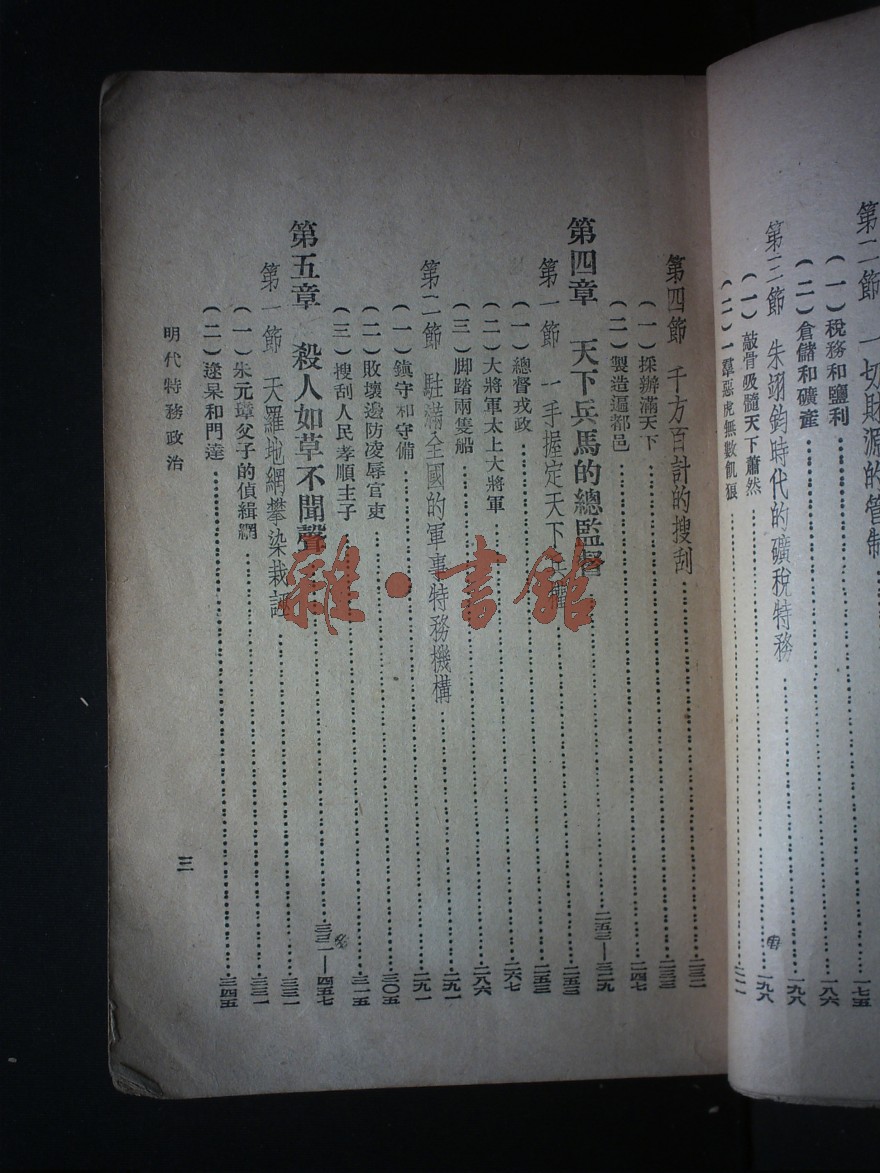 第二節 一切財源的管制……一七五
(一)稅務和鹽利……一八六
(二)倉儲和礦產……一九八
第三節 朱翊鈞時代的礦稅特務……一九八
(一)敲骨吸髓天下蕭然
(二)一羣惡虎無數飢狼……二一一
第四節 千方百計的搜刮……二三二
(一)採辦滿天下……二三三
(二)製造遍都邑……二四七
第四章 天下兵馬的總監督……二五三—三二九
第一節 一手握定天下兵權……二五三
(一)總督戎政……二五三
(二)大將軍太上大將軍……二六七
(三)脚踏兩隻船……二八六
第二節 駐滿全國的軍事特務機構……二九一
(一)鎮守和守備……二九一
(二)敗壞邊防凌辱官吏……三〇五
(三)搜刮人民孝順主子……三一五
第五章 殺人如草不聞聲……三三一—四五七
第一節 天羅地網攀染栽誣……三三一
(一)朱元璋父子的偵緝網……三三一
(二)逯杲和門達……三四五
明代特務政治
三
雜·書館